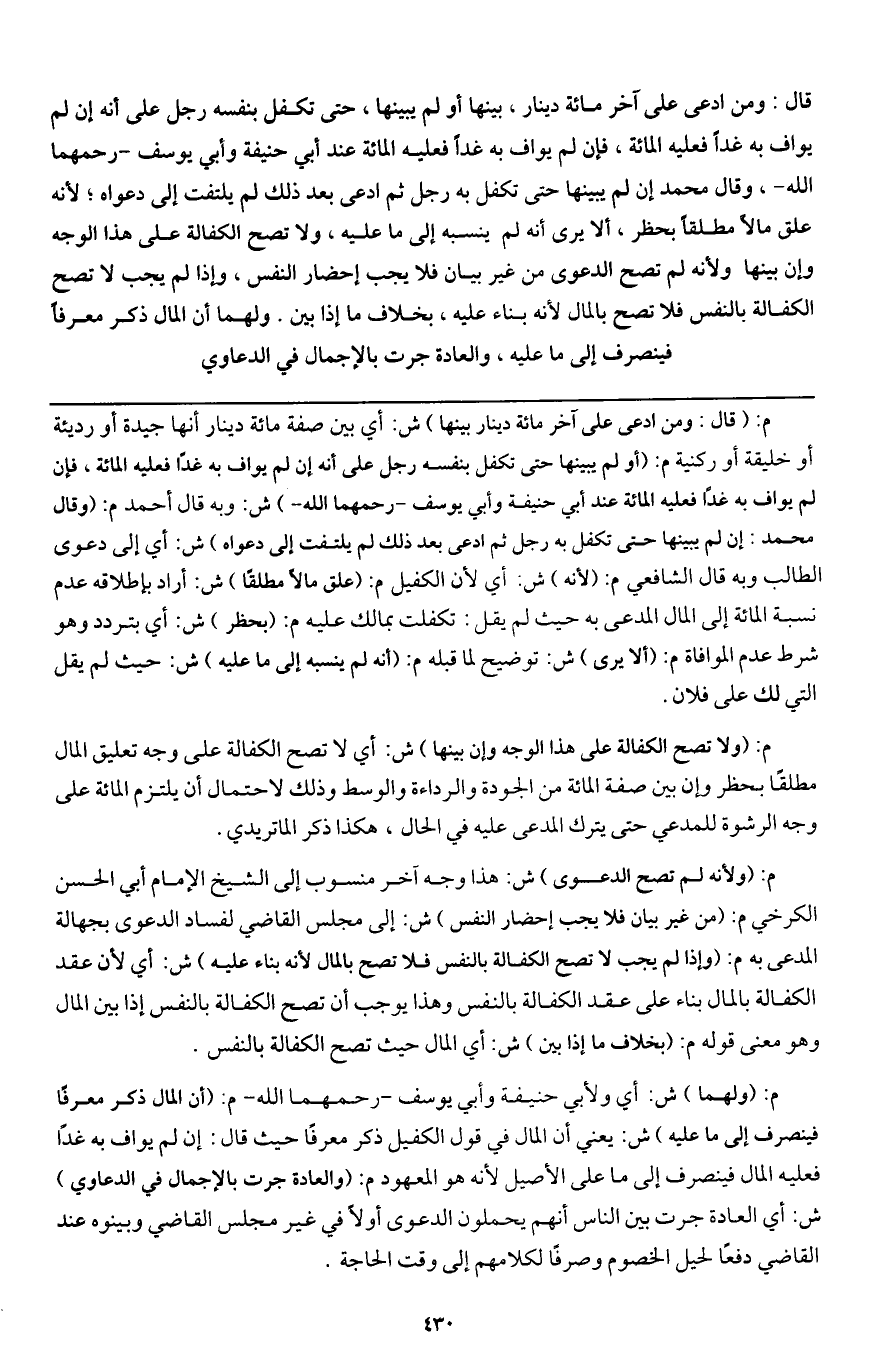 قال : ومن ادعى على آخر مائة دينار ، بينها أو لم يبينها ، حتى تكفل بنفسه رجل على أنه إن لم
يواف به غداً فعليه المائة ، فإن لم يواف به غداً فعليه المائة عند أبي حنيفة وأبي يوسف -رحمهما
الله- ، وقال محمد إن لم يبينها حتى تكفل به رجل ثم ادعى بعد ذلك لم يلتفت إلى دعواه ؛ لأنه
علق مالاً مطلقاً بحظر ، ألا يرى أنه لم ينسبه إلى ما عليه ، ولا تصح الكفالة على هذا الوجه
وإن بينها ولأنه لم تصح الدعوى من غير بيان فلا يجب إحضار النفس ، وإذا لم يجب لا تصح
الكفالة بالنفس فلا تصح بالمال لأنه بناء عليه ، بخلاف ما إذا بين . ولهما أن المال ذكر معرفاً
فينصرف إلى ما عليه ، والعادة جرت بالإجمال في الدعاوي
م: ( قال : ومن ادعى على آخر مائة دينار بينها ) ش: أي بين صفة مائة دينار أنها جيدة أو رديئة
أو خليقة أو ركنية م: (أو لم يبينها حتى تكفل بنفسه رجل على أنه إن لم يواف به غدًا فعليه المائة ، فإن
لم يواف به غدًا فعليه المائة عند أبي حنيفة وأبي يوسف -رحمهما الله- ) ش: وبه قال أحمد م: (وقال
محمد : إن لم يبينها حتى تكفل به رجل ثم ادعى بعد ذلك لم يلتفت إلى دعواه ) ش: أي إلى دعوى
الطالب وبه قال الشافعي م: (لأنه ) ش: أي لأن الكفيل م: (علق مالاً مطلقًا ) ش: أراد بإطلاقه عدم
نسبة المائة إلى المال المدعى به حيث لم يقل : تكفلت بمالك عليه م: (بحظر ) ش: أي بتردد وهو
شرط عدم الموافاة م: (ألا يرى ) ش: توضيح لما قبله م: (أنه لم ينسبه إلى ما عليه ) ش: حيث لم يقل
التي لك على فلان .
م: (ولا تصح الكفالة على هذا الوجه وإن بينها ) ش: أي لا تصح الكفالة على وجه تعليق المال
مطلقًا بحظر وإن بين صفة المائة من الجودة والرداءة والوسط وذلك لاحتمال أن يلتزم المائة على
وجه الرشوة للمدعي حتى يترك المدعى عليه في الحال ، هكذا ذكر الماتريدي .
م: (ولأنه لم تصح الدعوى ) ش: هذا وجه آخر منسوب إلى الشيخ الإمام أبي الحسن
الكرخي م: (من غير بيان فلا يجب إحضار النفس ) ش: إلى مجلس القاضي لفساد الدعوى بجهالة
المدعى به م: (وإذا لم يجب لا تصح الكفالة بالنفس فلا تصح بالمال لأنه بناء عليه ) ش: أي لأن عقد
الكفالة بالمال بناء على عقد الكفالة بالنفس وهذا يوجب أن تصح الكفالة بالنفس إذا بين المال
وهو معنى قوله م: (بخلاف ما إذا بين ) ش: أي المال حيث تصح الكفالة بالنفس .
م: (ولهما ) ش: أي ولأبي حنيفة وأبي يوسف -رحمهما الله- م: (أن المال ذكر معرفًا
فينصرف إلى ما عليه ) ش: يعني أن المال في قول الكفيل ذكر معرفًا حيث قال : إن لم يواف به غدًا
فعليه المال فينصرف إلى ما على الأصيل لأنه هو المعهود م: (والعادة جرت بالإجمال في الدعاوي )
ش: أي العادة جرت بين الناس أنهم يحملون الدعوى أولاً في غير مجلس القاضي وبينوه عند
القاضي دفعًا لحيل الخصوم وصرفًا لكلامهم إلى وقت الحاجة .
٤٣٠